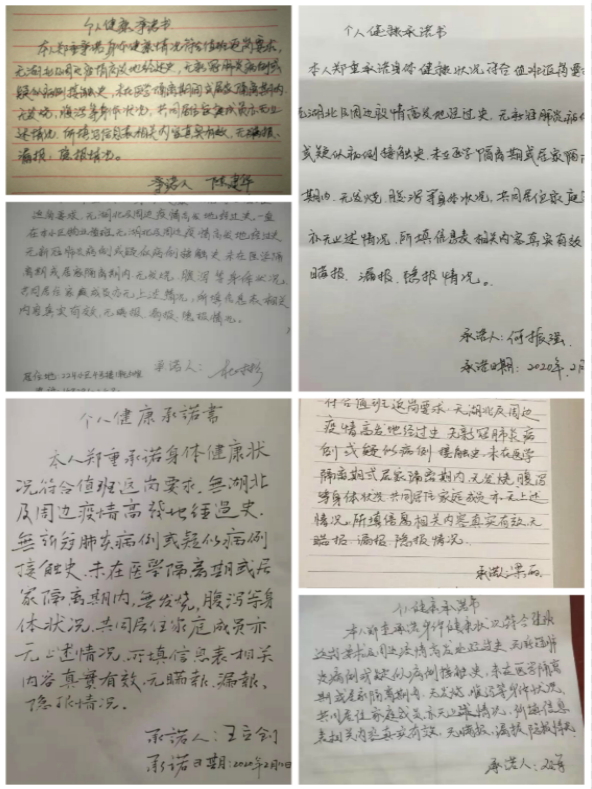 个人健康承诺书
本人郑重承诺身体健康情况符合值班返岗要求,
无湖北及周边疫情高发地经过史,无新冠肺炎病例或
疑似病例接触史,未在医学隔离期或居家隔离期内
无发烧,腹泻等身体状况,共同居住家庭成员亦无上
述情况,所填写信息表相关内容真实有效,无瞒报、
漏报,隐报情况。
承诺人
返岗要求,无湖北及周边疫情高发地经过史,一直
无湖北及周边疫情高发地经过史
无新冠肺炎病例或疑似病例接触史,未在医学隔
离期或居家隔离期内,无发烧,腹泻等身体状况,
共同居住家庭成员亦无上述情况,所填信息表相关
内容真实有效,无瞒报、漏报、隐报情况。
承诺人:
居住地:
个人健康承诺書
本人郑重承诺身体健康状
况符合值班返岗要求,無湖北
及周边疫情高發地經過史,
無新冠肺炎病例或疑似病例
接触史,未在医學隔离期或居
家隔离期内,無发烧,腹泻等身
体状况,共同居住家庭成員亦
无上述情况,所填信息表相関
内容真實有效,无瞞報,漏報,
隐报情况。
承諾人:王立创
承诺日期:2020年2月10日
个人健康承诺书
本人郑重承诺身体健康状况符合值班返岗要
无湖北及周边疫情高发地经过史,无新冠肺炎病
或疑似病例接触史,未在医学隔离期或居家隔
期内,无发烧,腹泻等身体状况,共同居住家庭
亦无上述情况,所填信息表相关内容真实有效
瞒报、漏报、隐报情况。
承诺人:何振强
承诺日期:2020年2月
符合值班返岗要求,无湖北及周边
疫情高发地经过史,无新冠肺炎病
例或疑似病例接触史,未在医学
隔离期或居家隔离期内,无发烧,腹泻
等身体状况,共同居住家庭成员亦无上述
情况,所填信息相关内容真实有效,无
瞒报、漏报、隐报情况。
承诺人:梁
个人健康承诺书
本人郑重承诺身体健康状况符合值班
返岗要求,无湖北及周边疫情高发地经过史,无新冠肺
炎病例或疑似病例接触史,未在医学隔离
期或居家隔离期内,无发烧、腹泻等身体状况,
共同居住家庭成员亦无上述情况,所填信息
表相关内容真实有效,无瞒报,漏报,隐报情况
承诺人: